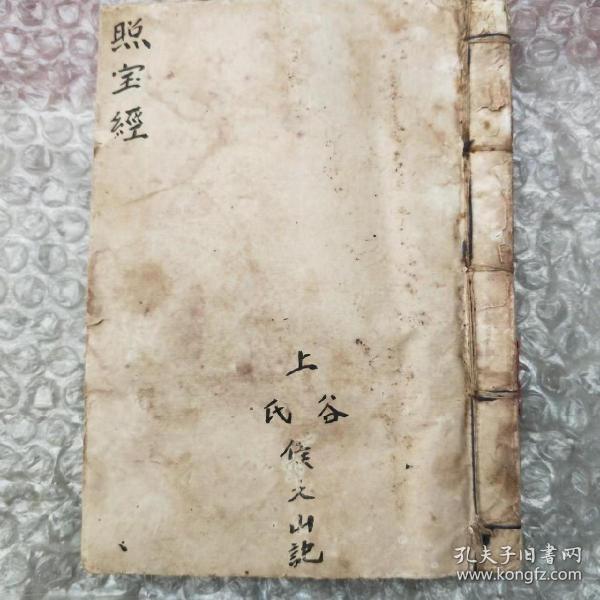 照宝經
上
谷
氏
侯
山記
孔夫子旧書网
www.kongfz.com